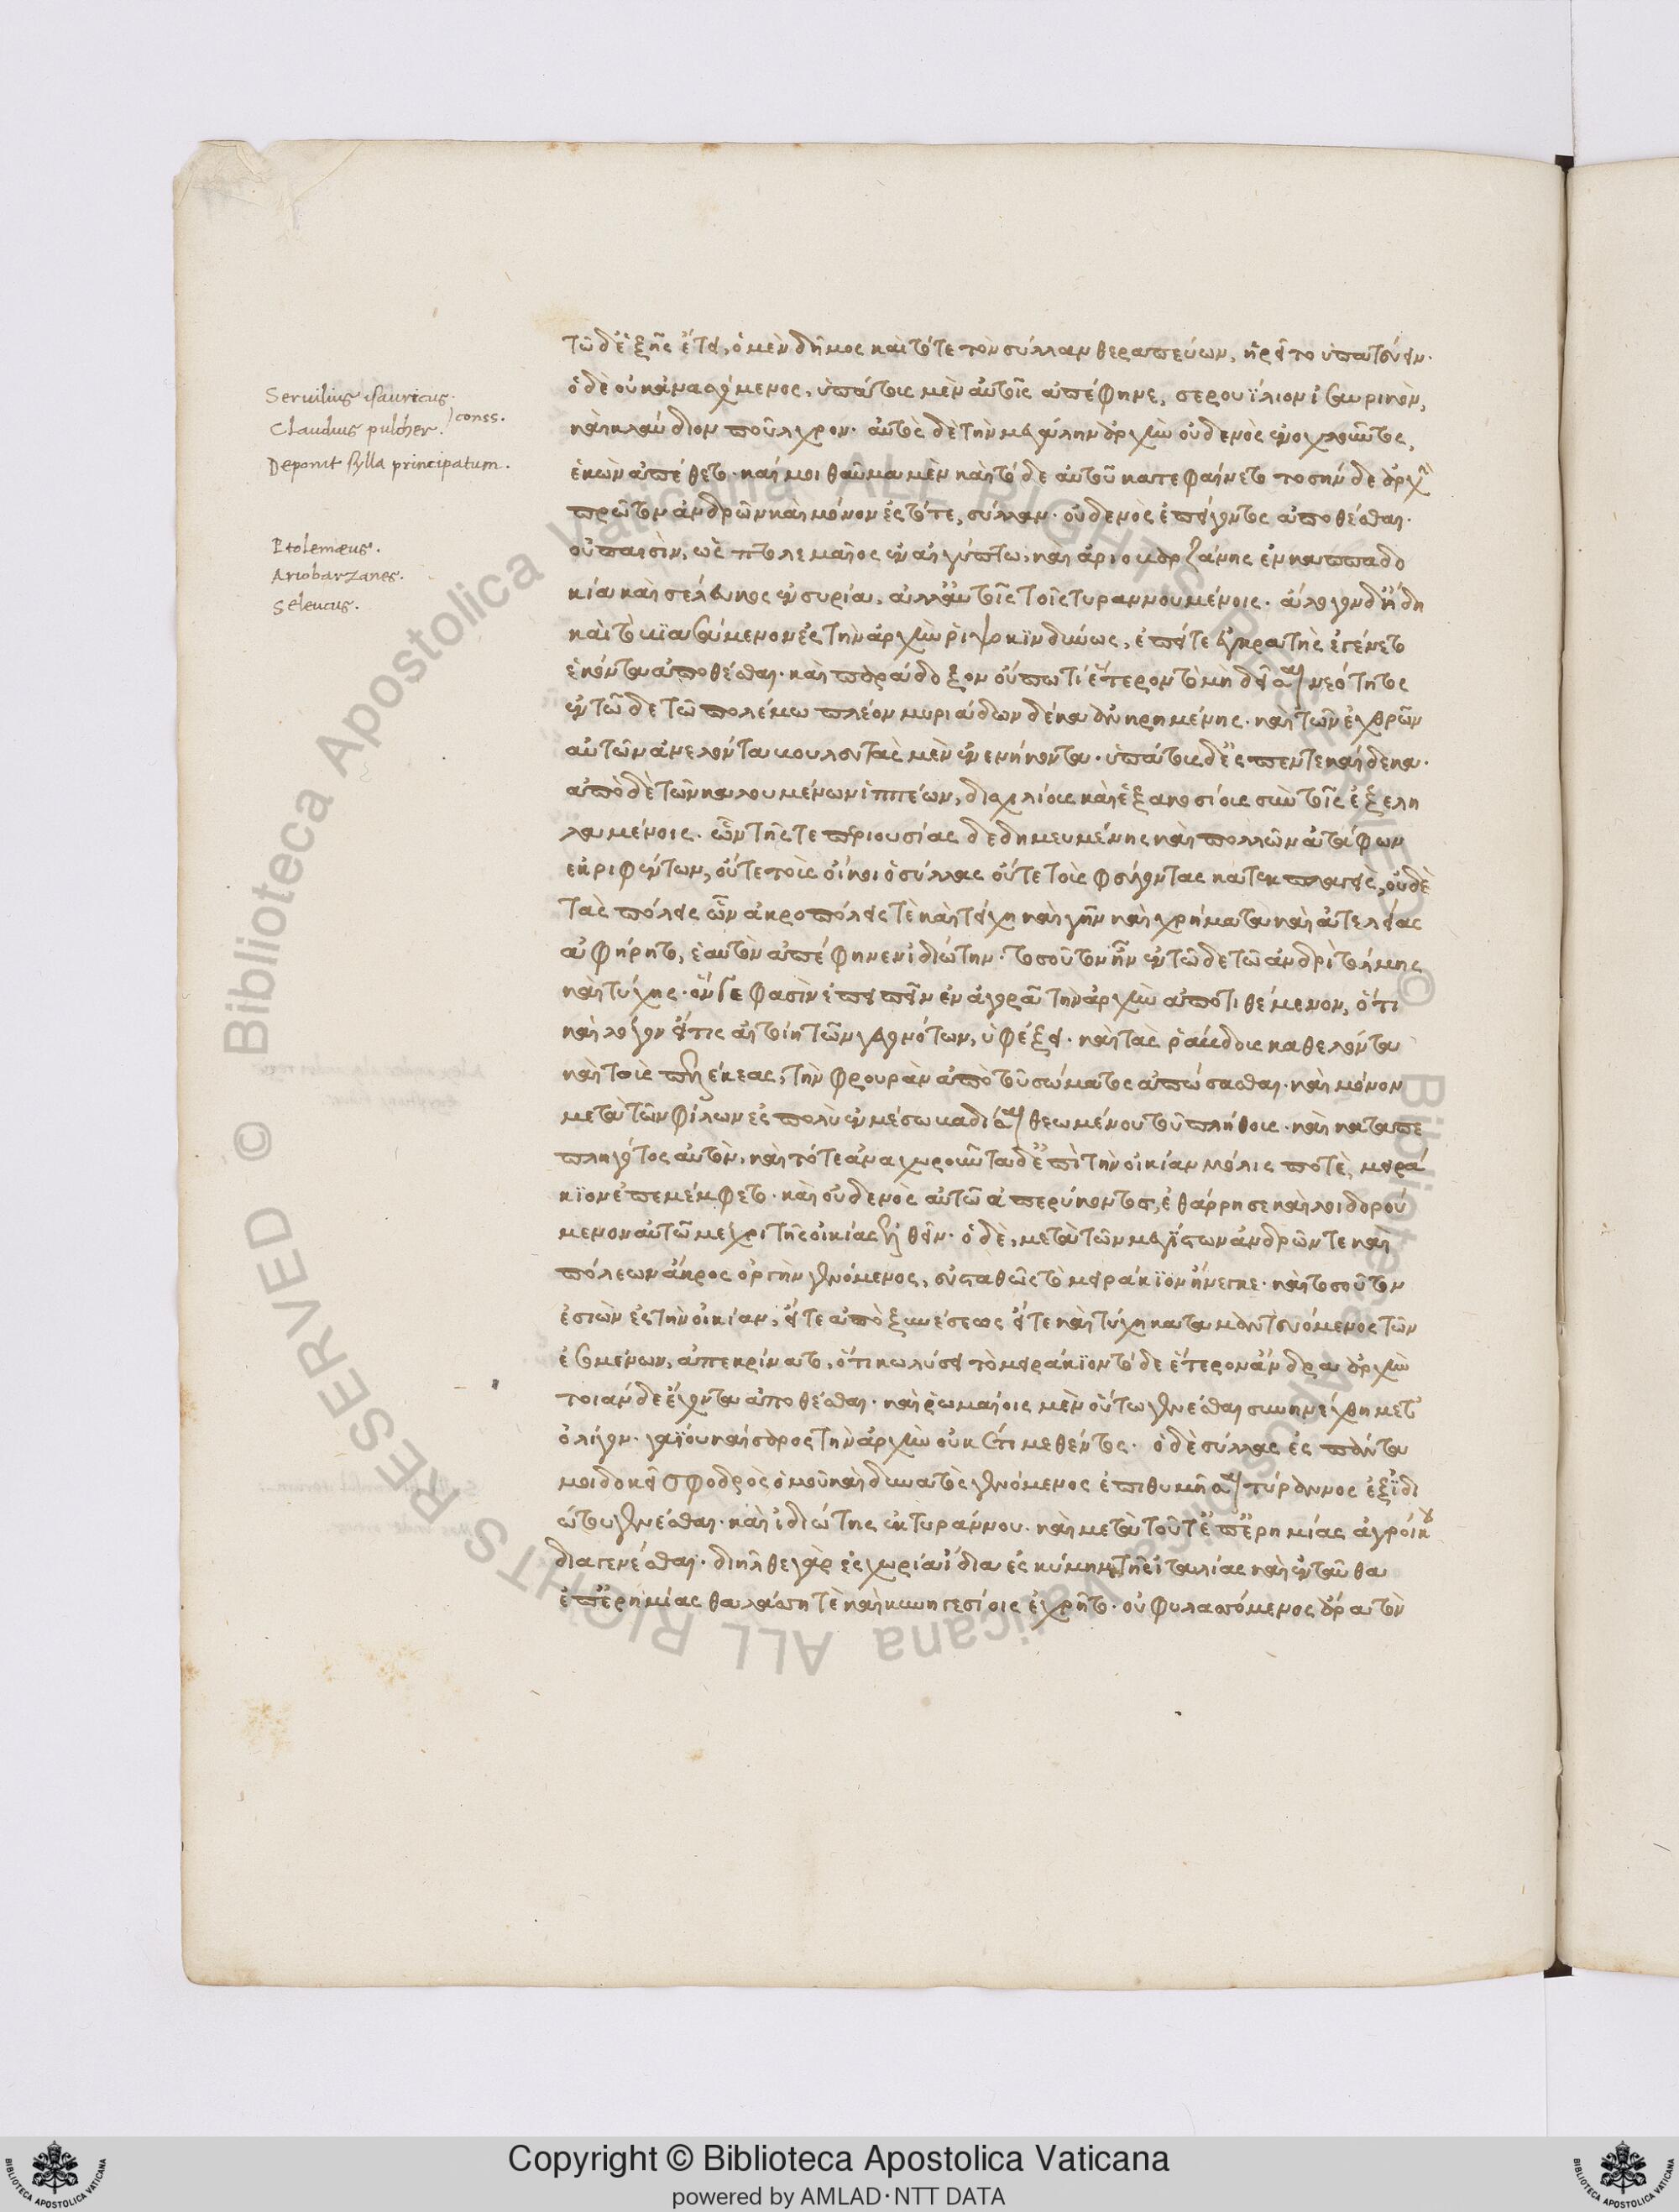 Servilius isauricus.
Claudius pulcher. } conss.
Deponit sylla principatum.
Ptolemæus.
Ariobarzanes.
Seleucus.
τῶ δ' ἑξῆς ἔτει, ὁ μὲν δῆμος καὶ τότε τὸν σύλλαν θεραπεύων, ἡρεῖτο ὑπατεύειν.
ὁ δὲ οὐκ ἀνασχόμενος, ὑπάτους μὲν αὐτοῖς ἀπέφηνε, σερουΐλιον ἰσαυρικὸν,
καὶ κλαύδιον ποῦλχρον. αὐτὸς δὲ τὴν μεγάλην ἀρχὴν οὐδενὸς ἐνοχλοῦντος,
ἑκὼν ἀπέθετο. καί μοι θαῦμα μὲν καὶ τόδε αὐτοῦ κατεφαίνετο τοσήνδε ἀρχὴν
πρῶτον ἀνδρῶν καὶ μόνον ἐς τότε, σύλλαν. οὐδενὸς ἐπείγοντος ἀποθέσθαι.
οὐ παισὶν, ὡς πτολεμαῖος ἐν αἰγύπτω, καὶ ἀριοβαρζάνης ἐν καππαδο
κία καὶ σέλευκος ἐν συρία, ἀλλ' αὐτοῖς τοῖς τυραννουμένοις. ἄλογον δ' ἤδη
καὶ τὸ βιασάμενον ἐς τὴν ἀρχὴν ῥιψοκινδύνως, ἐπεί τε ἐγκρατὴς ἐγένετο
ἑκόντα ἀποθέσθαι. καὶ παράδοξον οὔπω τι ἕτερον τὸ μὴ δεῖσαι νεότητος
ἐν τῶδε τῶ πολέμω πλέον μυριάδων δέκα ἀνηρημένης. καὶ τῶν ἐχθρῶν
αὐτῶν ἀνελόντα βουλευτὰς μὲν ἐνενήκοντα. ὑπάτους δ' ἐς πεντεκαίδεκα.
ἀπὸ δὲ τῶν καλουμένων ἱππέων, δισχιλίους καὶ ἑξακοσίους σὺν τοῖς ἐξελη
λαμένοις. ὧν τῆς τε περιουσίας δεδημευμένης καὶ πολλῶν ἀτάφων
ἐκριφέντων, οὔτε τοὺς οἴκοι ὁ σύλλας οὔτε τοὺς φεύγοντας καταπλαγεὶς, οὐδὲ
τὰς πόλεις ὧν ἀκροπόλεις τὲ καὶ τείχη καὶ γῆν καὶ χρήματα καὶ ἀτελείας
ἀφήρητο, ἑαυτὸν ἀπέφηνεν ἰδιώτην. τοσοῦτον ἦν ἐν τῶδε τῶ ἀνδρὶ τόλμης
καὶ τύχης. ὅν γε φασὶν ἐπειπεῖν ἐν ἀγορᾶ τὴν ἀρχὴν ἀποτιθέμενον, ὅτι
καὶ λόγον εἴ τις αἰτοίη τῶν γεγονότων, ὑφέξει. καὶ τὰς ῥάβδους καθελόντα
καὶ τοὺς πελέκεας, τὴν φρουρὰν ἀπὸ τοῦ σώματος ἀπώσασθαι. καὶ μόνον
μετὰ τῶν φίλων ἐς πολὺ ἐν μέσω βαδίσαι θεωμένου τοῦ πλήθους. καὶ καταπε
πληγότος αὐτὸν, καὶ τότε ἀναχωροῦντα δ' ἐπὶ τὴν οἰκίαν μόλις ποτὲ, μειρά
κιον ἐπεμέμφετο. καὶ οὐδενὸς αὐτῶ ἀπερύκοντος, ἐθάρρησε καὶ λοιδορού
μενον αὐτῶ μέχρι τῆς οἰκίας ἐλθεῖν. ὁ δὲ, μετὰ τῶν μεγίστων ἀνδρῶν τε καὶ
πόλεων ἄκρος ὀργὴν γενόμενος, εὐσταθῶς τὸ μειράκιον ἤνεγκε. καὶ τοσοῦτον
ἐσιὼν ἐς τὴν οἰκίαν, εἴτε ἀπὸ ξυνέσεως εἴτε καὶ τύχη καταμαντευόμενος τῶν
ἐσομένων, ἀπεκρίνατο, ὅτι κωλύσει τὸ μειράκιον τόδε ἕτερον ἄνδρα ἀρχὴν
τοιάνδε ἔχοντα ἀποθέσθαι. καὶ ῥωμαίοις μὲν οὕτω γενέσθαι συνηνέχθη μετ'
ὀλίγον. γαΐου καίσαρος τὴν ἀρχὴν οὐκέτι μεθέντος. ὁ δὲ σύλλας ἐς πάντα
μοι δοκεῖ σφοδρὸς ὁμοῦ καὶ δυνατὸς γενόμενος ἐπιθυμῆσαι τύραννος ἐξ ἰδι
ώτου γενέσθαι. καὶ ἰδιώτης ἐκ τυράννου. καὶ μετὰ τοῦτ' ἐπ' ἐρημίας ἀγροίκου
διαγενέσθαι. διῆλθε γὰρ ἐς χωρία ἴδια ἐς κύμην τῆς ἰταλίας καὶ ἐνταῦθα
ἐπ' ἐρημίας θαλάσση τὲ καὶ κυνηγεσίοις ἐχρῆτο. οὐ φυλασσόμενος ἄρα τὸν